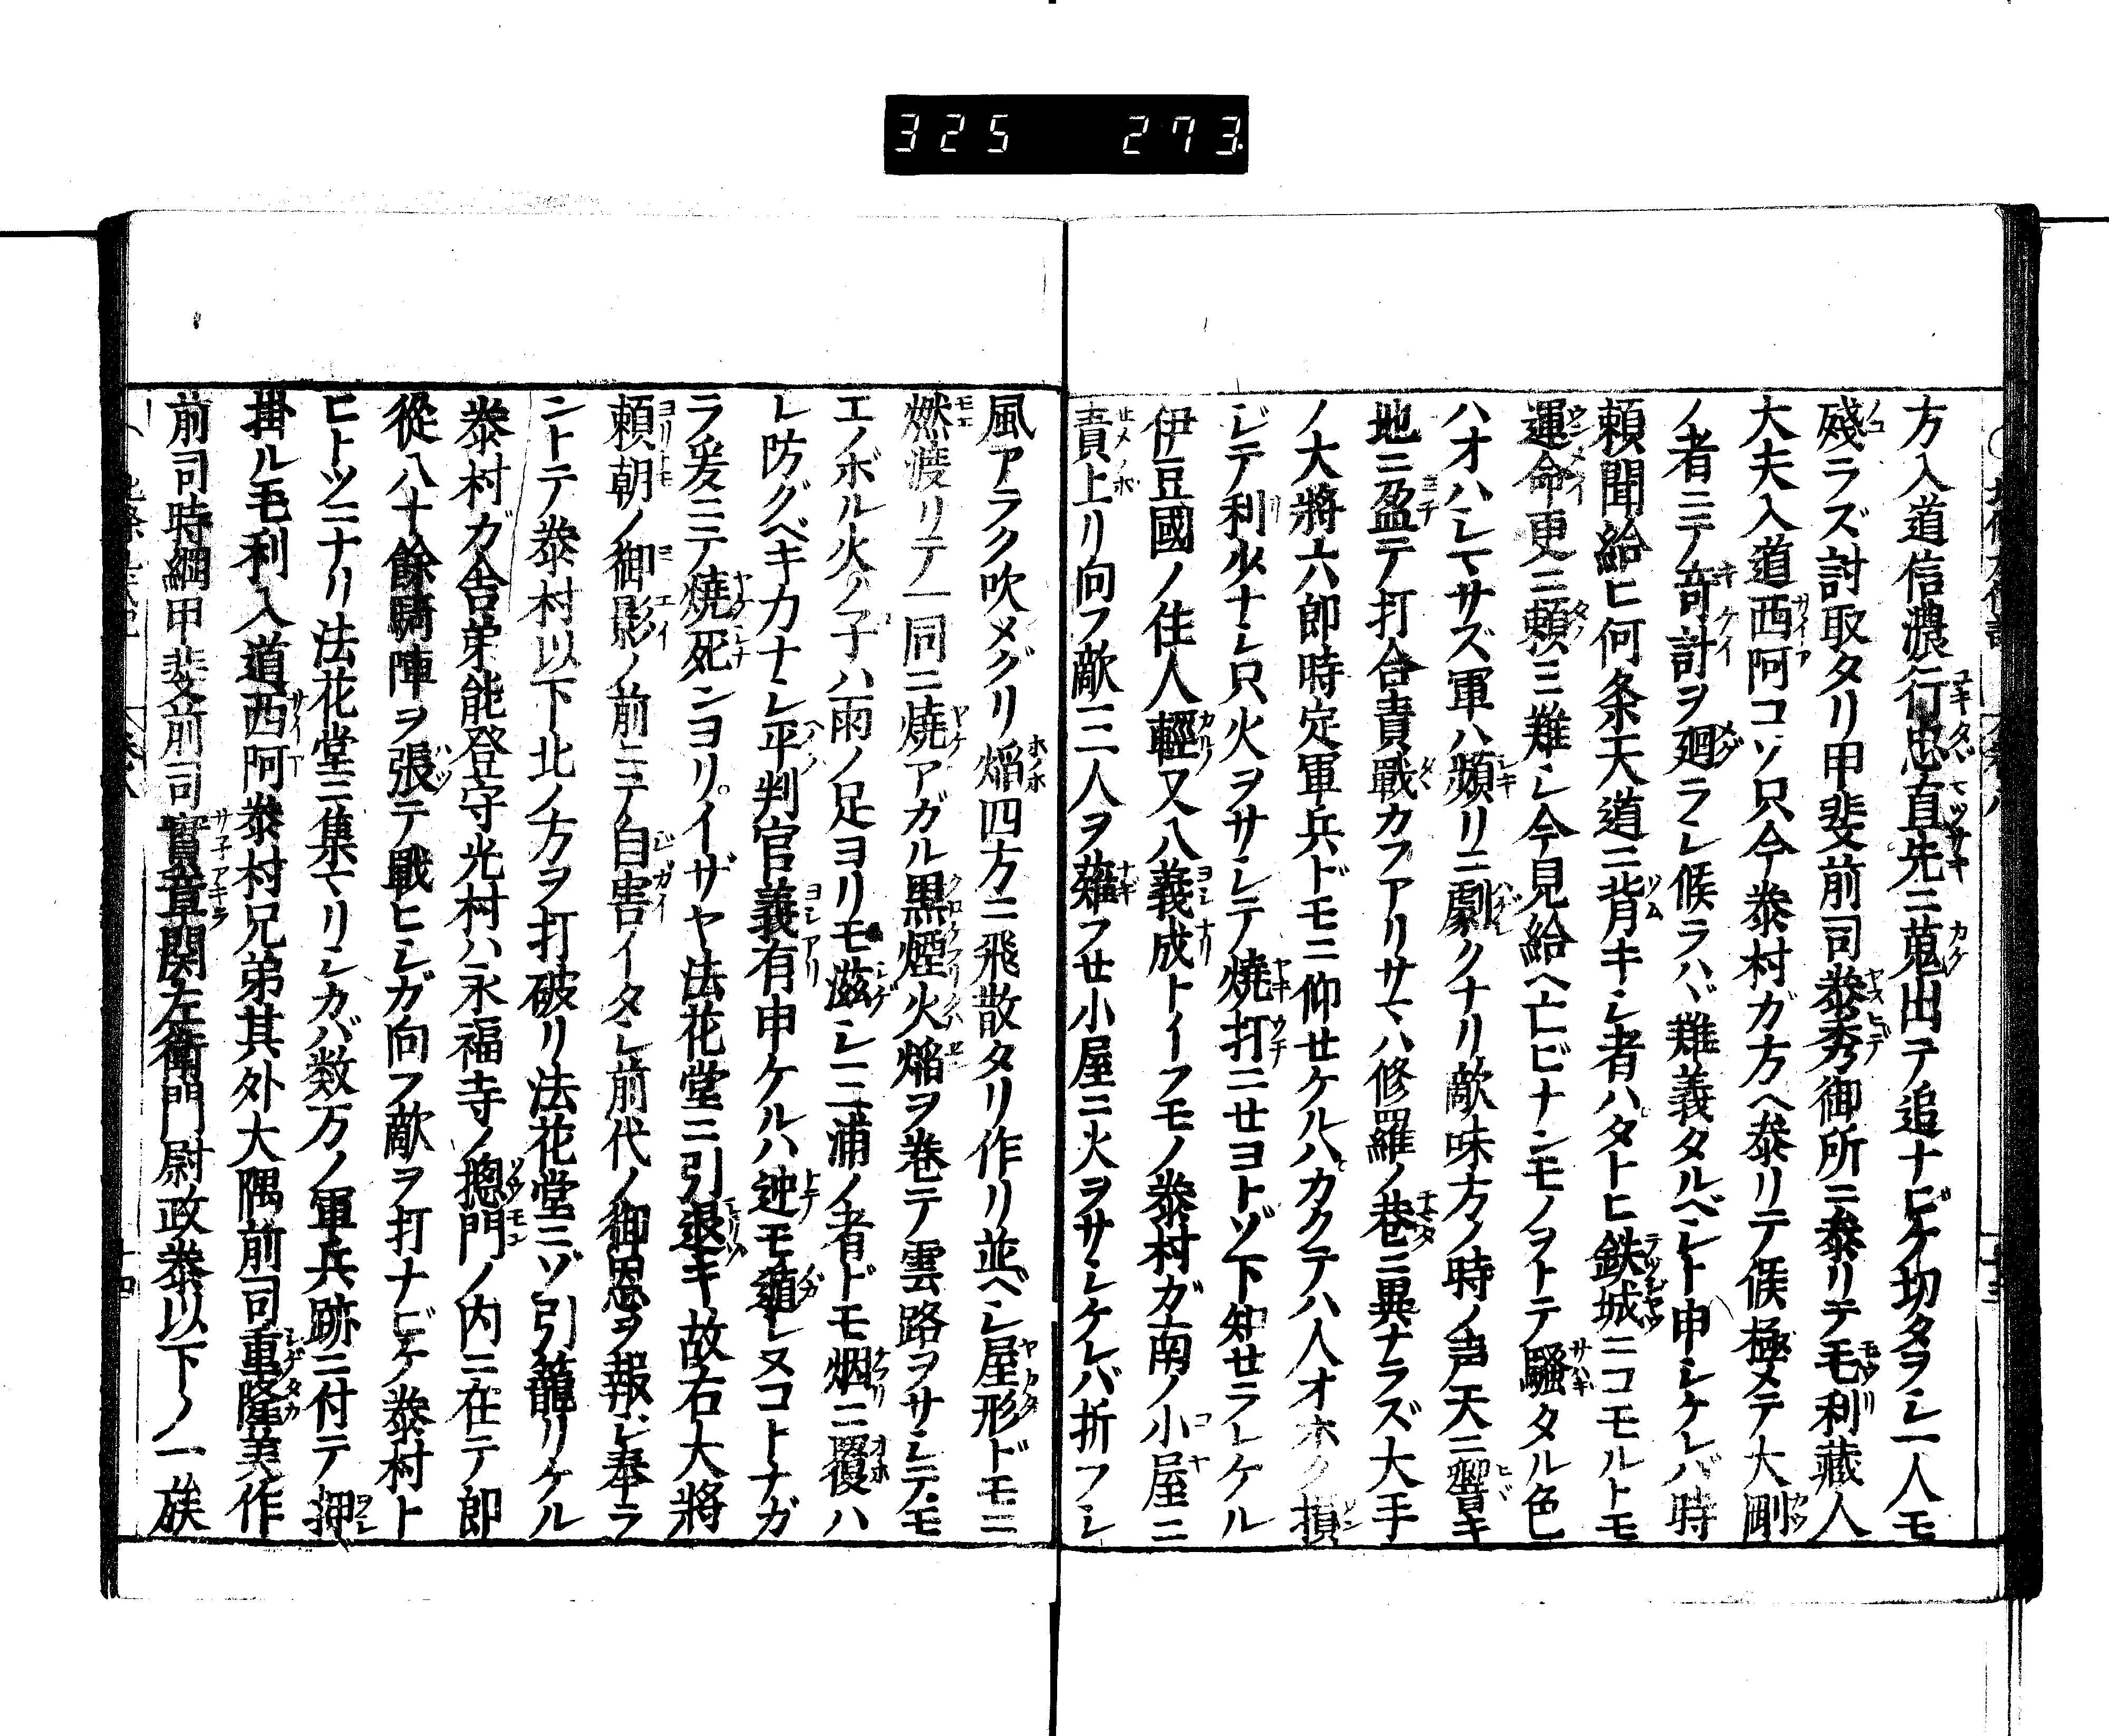 325 273
方入道信濃行忠直先ニ蒐出テ追ナビケ切タヲシ一人モ
殘ラズ討取タリ甲斐前司泰秀御所ニ参リテ毛利藏人
大夫入道西阿コソ只今泰村ガ方ヘ参リテ候極メテ大剛
ノ者ニテ奇計ヲ廻ラシ候ラハヾ難義タルベシト申シケレバ時
頼聞給ヒ何条天道ニ背キシ者ハタトヒ鉄城ニコモルトモ
運命更ニ頼ミ難シ今見給ヘ亡ビナンモノヲトテ騒タル色
ハオハシマサズ軍ハ頻リニ劇クナリ敵味方ノ時ノ声天ニ響キ
地ニ盈テ打合責戰カフアリサマハ修羅ノ巷ニ異ナラズ大手
ノ大將六郎時定軍兵ドモニ仰せケルハカクテハ人オホク損
ジテ利少ナシ只火ヲサシテ燒打ニせヨトゾ下知せラレケル
伊豆國ノ住人輕又八義成トイフモノ泰村ガ南ノ小屋ニ
責上リ向フ敵三人ヲ薙フせ小屋ニ火ヲサシケレバ折フシ
風アラク吹メグリ焔四方ニ飛散タリ作リ並ベシ屋形ドモニ
燃渡リテ一同ニ燒アガル黒煙火焔ヲ巻テ雲路ヲサシテモ
エノボル火ノ子ハ雨ノ足ヨリモ滋シ三浦ノ者ドモ烟ニ覆ハ
レ防グベキ力ナシ平判官義有申ケルハ迚モ遁レヌコトナガ
ラ爰ニテ燒死ンヨリイザヤ法花堂ニ引退キ故右大將
頼朝ノ御影ノ前ニテ自害イタシ前代ノ御恩ヲ報ジ奉ラ
ントテ泰村以下北ノ方ヲ打破リ法花堂ニゾ引籠リケル
泰村ガ舎弟能登守光村ハ永福寺ノ惣門ノ内ニ在テ郎
從八十餘騎陣ヲ張テ戰ヒシガ向フ敵ヲ打ナビケ泰村ト
ヒトツニナリ法花堂ニ集マリシカバ数万ノ軍兵跡ニ付テ押
掛ル毛利入道西阿泰村兄弟其外大隅前司重隆美作
前司時綱甲斐前司實章関左衛門尉政泰以下ノ一族